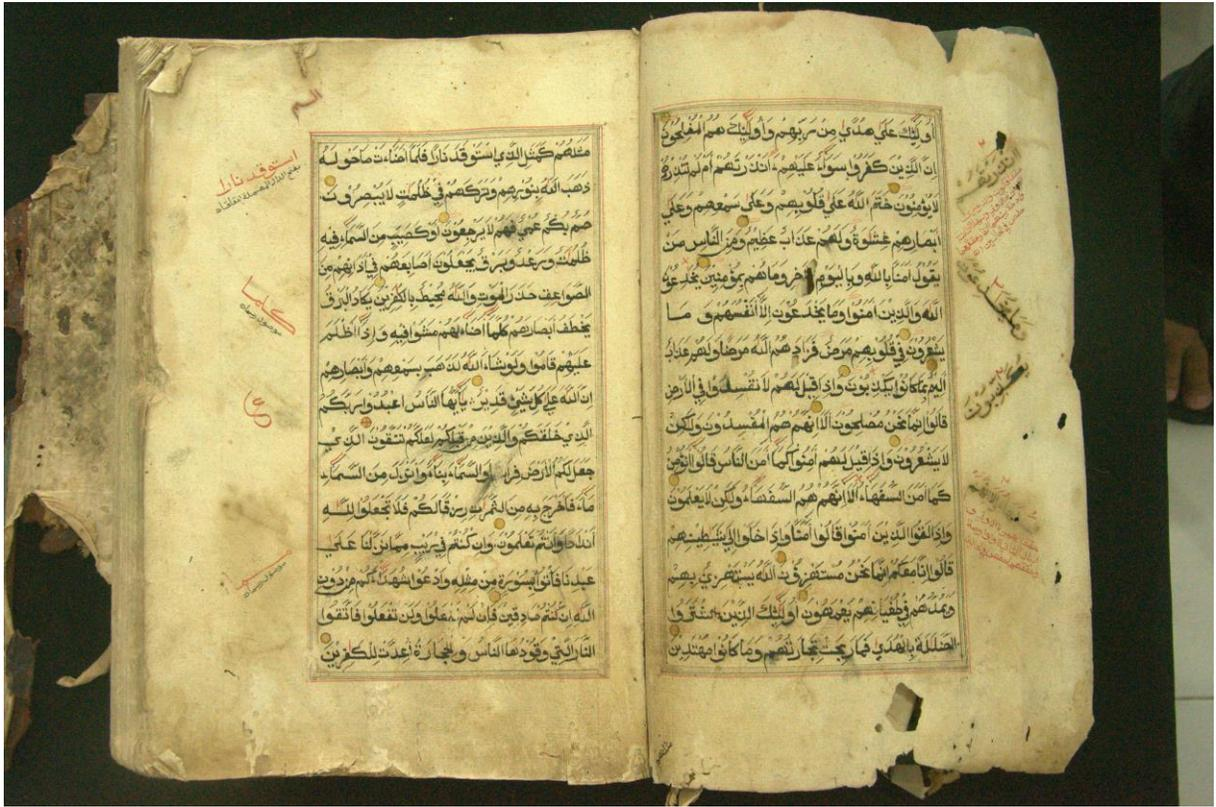 أُولَٰئِكَ عَلَىٰ هُدًى مِنْ رَبِّهِمْ وَأُولَٰئِكَ هُمُ الْمُفْلِحُونَ
اِنَّ الَّذِينَ كَفَرُوا سَوَاءٌ عَلَيْهِمْ ءَاَنْذَرْتَهُمْ أَمْ لَمْ تُنْذِرْهُمْ
لَا يُؤْمِنُونَ خَتَمَ اللَّهُ عَلَىٰ قُلُوبِهِمْ وَعَلَىٰ سَمْعِهِمْ وَعَلَىٰ
اَبْصَارِهِمْ غِشَٰوَةٌ وَلَهُمْ عَذَابٌ عَظِيمٌ وَمِنَ النَّاسِ مَنْ
يَقُولُ اٰمَنَّا بِاللَّهِ وَبِالْيَوْمِ الْاٰخِرِ وَمَا هُمْ بِمُؤْمِنِينَ يُخَٰدِعُونَ
اللَّهَ وَالَّذِينَ اٰمَنُوا وَمَا يَخْدَعُونَ اِلَّا اَنْفُسَهُمْ وَمَا
يَشْعُرُونَ فِي قُلُوبِهِمْ مَرَضٌ فَزَادَهُمُ اللَّهُ مَرَضًا وَلَهُمْ عَذَابٌ
اَلِيمٌ بِمَا كَانُوا يَكْذِبُونَ وَاِذَا قِيلَ لَهُمْ لَا تُفْسِدُوا فِي الْاَرْضِ
قَالُوا اِنَّمَا نَحْنُ مُصْلِحُونَ اَلَا اِنَّهُمْ هُمُ الْمُفْسِدُونَ وَلَٰكِنْ
لَا يَشْعُرُونَ وَاِذَا قِيلَ لَهُمْ اٰمِنُوا كَمَا اٰمَنَ النَّاسُ قَالُوا اَنُؤْمِنُ
كَمَا اٰمَنَ السُّفَهَاءُ اَلَا اِنَّهُمْ هُمُ السُّفَهَاءُ وَلَٰكِنْ لَا يَعْلَمُونَ
وَاِذَا لَقُوا الَّذِينَ اٰمَنُوا قَالُوا اٰمَنَّا وَاِذَا خَلَوْا اِلَىٰ شَيَٰطِينِهِمْ
قَالُوا اِنَّا مَعَكُمْ اِنَّمَا نَحْنُ مُسْتَهْزِءُونَ اَللَّهُ يَسْتَهْزِئُ بِهِمْ
وَيَمُدُّهُمْ فِي طُغْيَٰنِهِمْ يَعْمَهُونَ اُولَٰئِكَ الَّذِينَ اشْتَرَوُا
الضَّلَٰلَةَ بِالْهُدَىٰ فَمَا رَبِحَتْ تِجَارَتُهُمْ وَمَا كَانُوا مُهْتَدِينَ
مَثَلُهُمْ كَمَثَلِ الَّذِي اسْتَوْقَدَ نَارًا فَلَمَّا اَضَاءَتْ مَا حَوْلَهُ
ذَهَبَ اللَّهُ بِنُورِهِمْ وَتَرَكَهُمْ فِي ظُلُمَٰتٍ لَا يُبْصِرُونَ
صُمٌّ بُكْمٌ عُمْيٌ فَهُمْ لَا يَرْجِعُونَ اَوْ كَصَيِّبٍ مِنَ السَّمَاءِ فِيهِ
ظُلُمَٰتٌ وَرَعْدٌ وَبَرْقٌ يَجْعَلُونَ اَصَابِعَهُمْ فِي اٰذَانِهِمْ مِنَ
الصَّوَاعِقِ حَذَرَ الْمَوْتِ وَاللَّهُ مُحِيطٌ بِالْكَٰفِرِينَ يَكَادُ الْبَرْقُ
يَخْطَفُ اَبْصَارَهُمْ كُلَّمَا اَضَاءَ لَهُمْ مَشَوْا فِيهِ وَاِذَا اَظْلَمَ
عَلَيْهِمْ قَامُوا وَلَوْ شَاءَ اللَّهُ لَذَهَبَ بِسَمْعِهِمْ وَاَبْصَارِهِمْ
اِنَّ اللَّهَ عَلَىٰ كُلِّ شَيْءٍ قَدِيرٌ يٰاَيُّهَا النَّاسُ اعْبُدُوا رَبَّكُمُ
الَّذِي خَلَقَكُمْ وَالَّذِينَ مِنْ قَبْلِكُمْ لَعَلَّكُمْ تَتَّقُونَ الَّذِي
جَعَلَ لَكُمُ الْاَرْضَ فِرَاشًا وَالسَّمَاءَ بِنَاءً وَاَنْزَلَ مِنَ السَّمَاءِ
مَاءً فَاَخْرَجَ بِهِ مِنَ الثَّمَرَٰتِ رِزْقًا لَكُمْ فَلَا تَجْعَلُوا لِلَّهِ
اَنْدَادًا وَاَنْتُمْ تَعْلَمُونَ وَاِنْ كُنْتُمْ فِي رَيْبٍ مِمَّا نَزَّلْنَا عَلَىٰ
عَبْدِنَا فَأْتُوا بِسُورَةٍ مِنْ مِثْلِهِ وَادْعُوا شُهَدَاءَكُمْ مِنْ دُونِ
اللَّهِ اِنْ كُنْتُمْ صَٰدِقِينَ فَاِنْ لَمْ تَفْعَلُوا وَلَنْ تَفْعَلُوا فَاتَّقُوا
النَّارَ الَّتِي وَقُودُهَا النَّاسُ وَالْحِجَارَةُ اُعِدَّتْ لِلْكَٰفِرِينَ
استوقد نارا
كلما